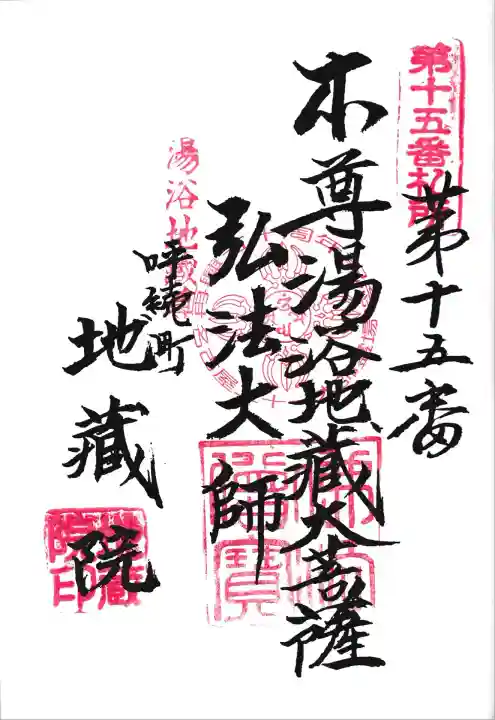 第十五番札所
第十五番
本尊湯浴地藏大菩薩
弘法大師
湯浴地蔵
呼続町
地藏院
地蔵院印